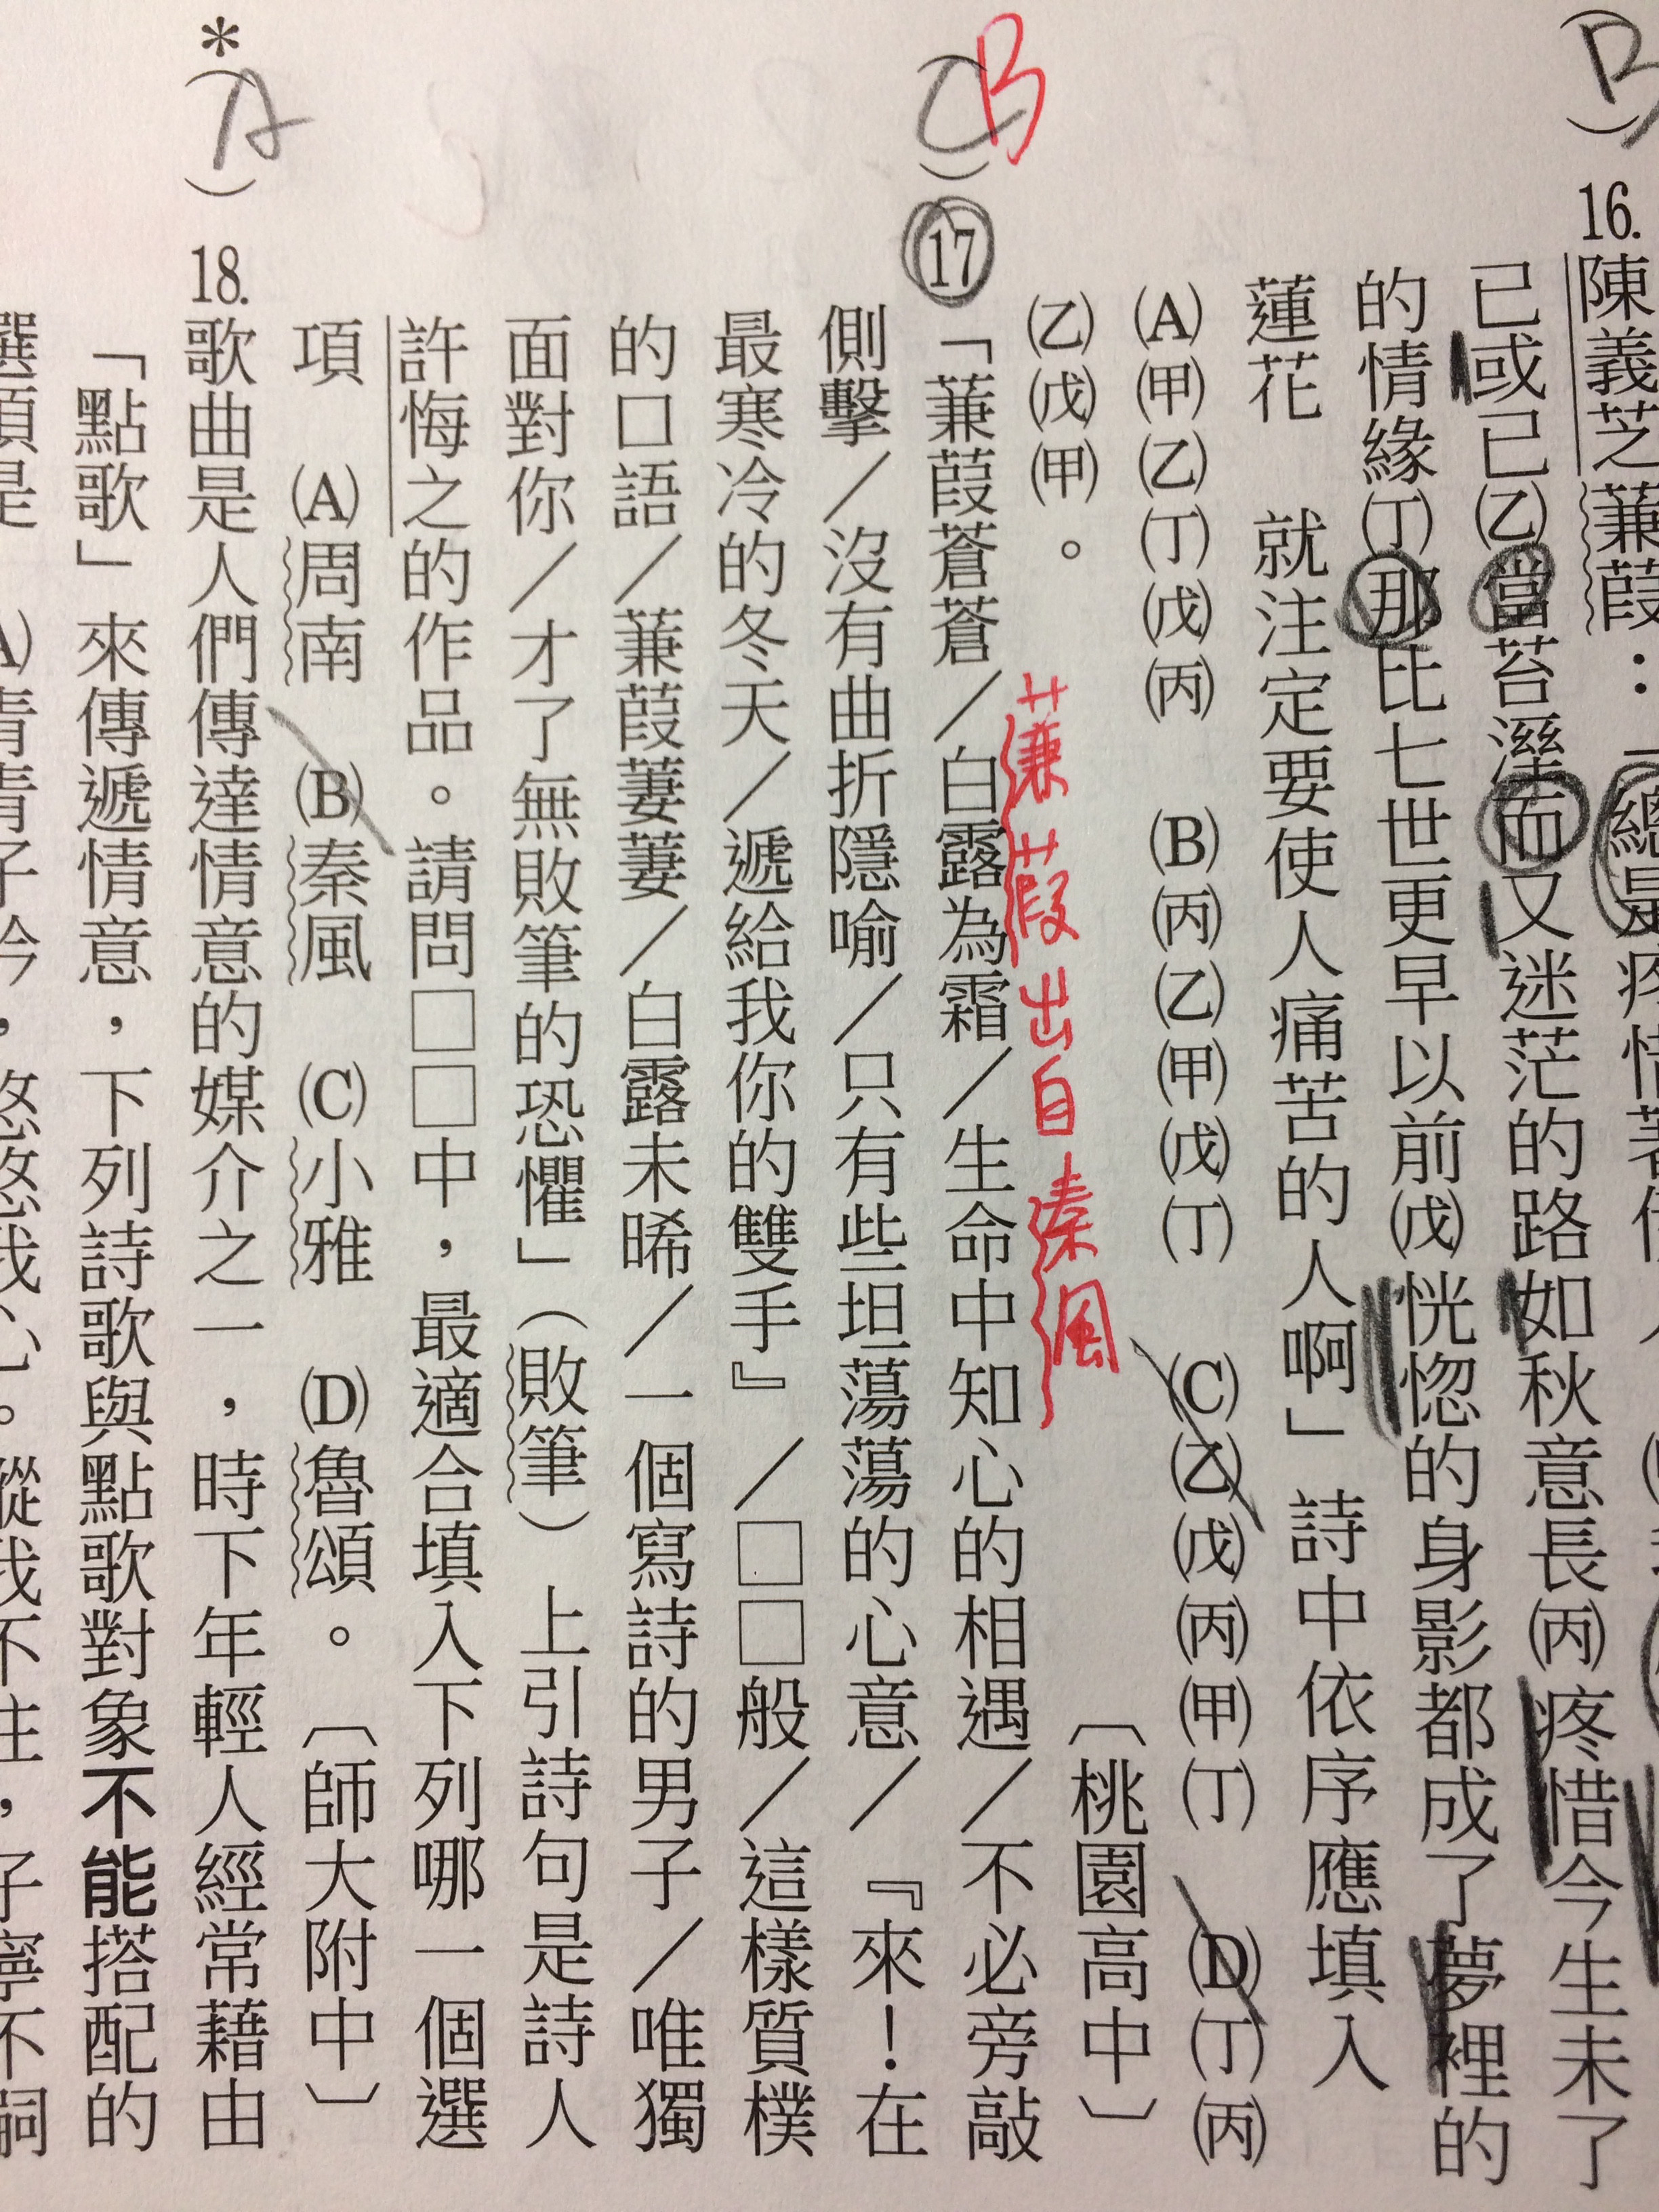 (B)16.陳義芝蒹葭：「總是疼惜著
己或己㈡當苔溼而又迷茫的路如秋意長㈢疼惜今生未了
的情緣㈣那比七世更早以前㈤恍惚的身影都成了夢裡的
蓮花　就注定要使人痛苦的人啊」詩中依序應填入
(A)甲乙丁戊丙　(B)丙乙甲戊丁　(C)乙戊丙甲丁　(D)丁丙
乙戊甲。　〔桃園高中〕
蒹葭出自秦風
(C)B 17「蒹葭蒼蒼／白露為霜／生命中知心的相遇／不必旁敲
側擊／沒有曲折隱喻／只有些坦蕩蕩的心意／『來！在
最寒冷的冬天／遞給我你的雙手』／□□般／這樣質樸
的口語／蒹葭萋萋／白露未晞／一個寫詩的男子／唯獨
面對你／才了無敗筆的恐懼」（敗筆）上引詩句是詩人
許悔之的作品。請問□□中，最適合填入下列哪一個選
項　(A)周南　(B)秦風　(C)小雅　(D)魯頌。〔師大附中〕
*(A)18.歌曲是人們傳達情意的媒介之一，時下年輕人經常藉由
「點歌」來傳遞情意，下列詩歌與點歌對象不能搭配的
選項是　(A)青青子衿，悠悠我心。縱我不往，子寧不嗣